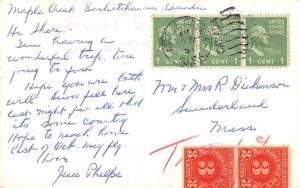 Maple Creek Saskatchewan, Canada
Hi There.
Am having a
wonderful trip, time
going to fast.
Hope you are both
well snow fell here
last night for all that
its some country
Hope to reach home
last of Oct. may fly.
Love
Jesse Phelps
1 CENT 1
1 CENT 1
1 CENT 1
Mr & Mrs R Dickenson
Sunderland
Mass
T
3
3